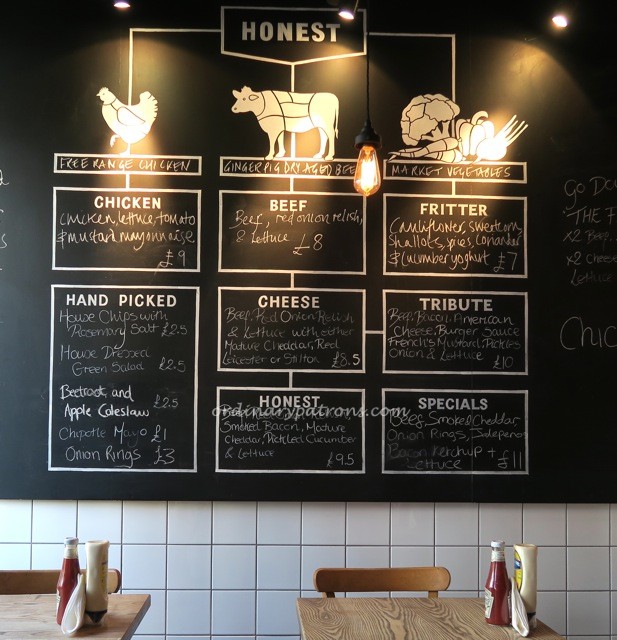 HONEST
FREE RANGE CHICKEN
GINGER PIG DRY AGED BEEF
MARKET VEGETABLES
CHICKEN
Chicken, lettuce, tomato
& mustard mayonnaise
£9
BEEF
Beef, red onion relish,
& Lettuce £8
FRITTER
Cauliflower, sweetcorn,
Shallots, spices, coriander
& cucumber yoghurt £7
HAND PICKED
House Chips with
Rosemary Salt £2.5
House Dressed
Green Salad £2.5
Beetroot and
Apple Coleslaw £2.5
Chipotle Mayo £1
Onion Rings £3
CHEESE
Beef, Red Onion Relish
& Lettuce with either
Mature Cheddar, Red
Leicester or Stilton £8.5
TRIBUTE
Beef, Bacon, American
Cheese, Burger Sauce
French's Mustard, Pickles
Onion & Lettuce £10
HONEST
Smoked Bacon, Mature
Cheddar, Pickled Cucumber
& Lettuce £9.5
SPECIALS
Beef, Smoked Cheddar,
Onion Rings, Jalepeno
Bacon Ketchup +
Lettuce £11
Go Dou
'THE F
x2 Beef,
x2 Cheese
Lettuce
Chic
ordinarypatrons.com